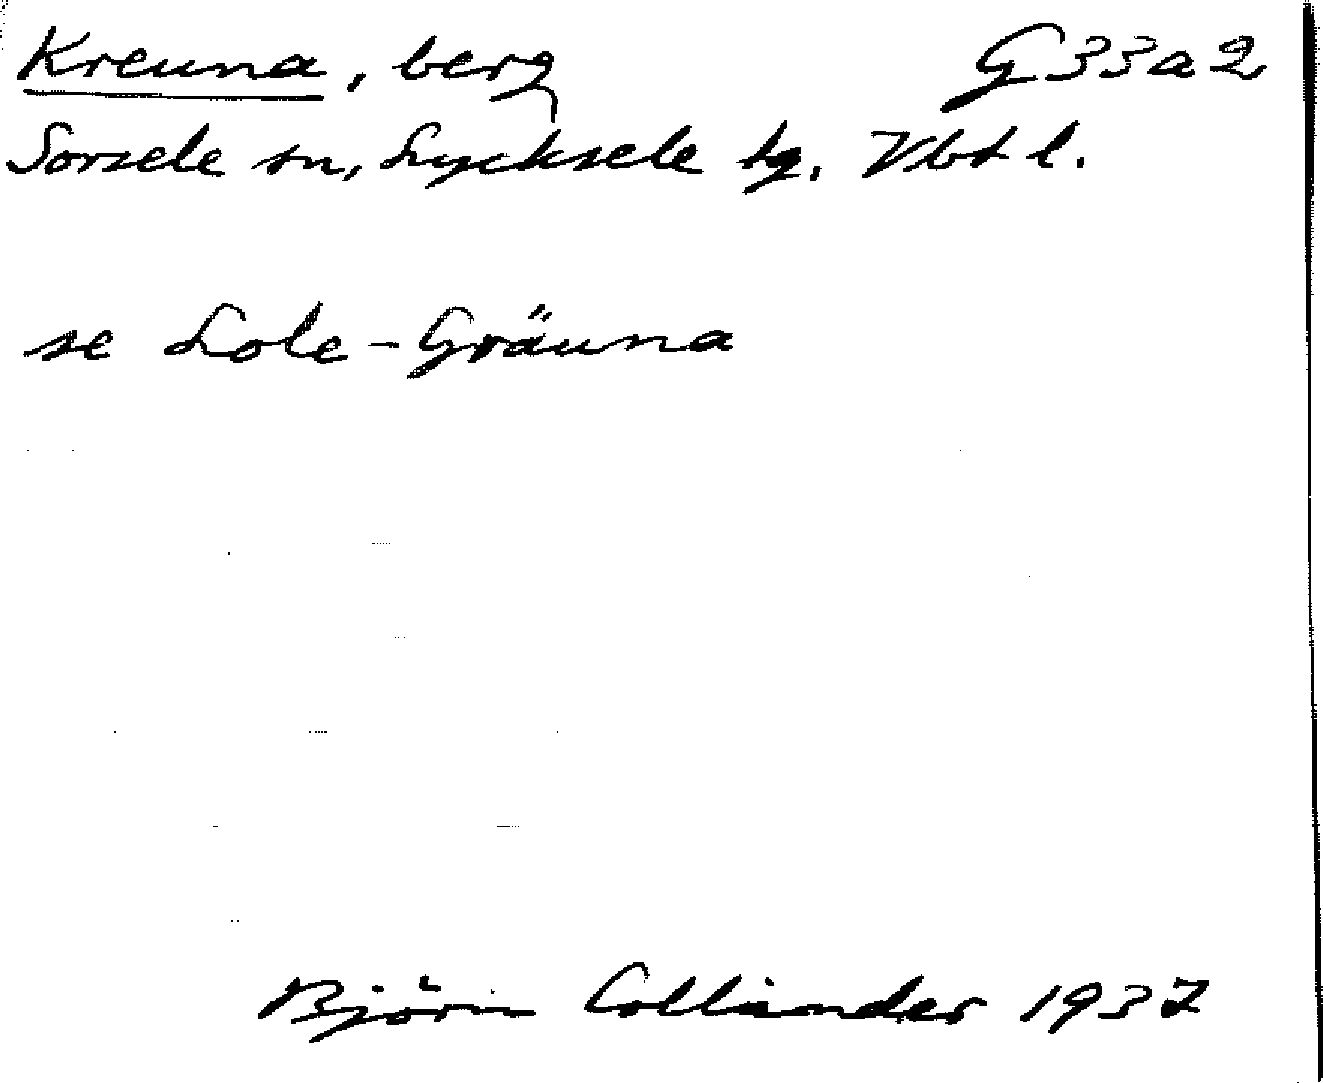 Kreuna, berg G33a2
Sorsele sn, Lycksele tg. Vbtl.
se Lole-Gräuna
Björn Collinder 1937